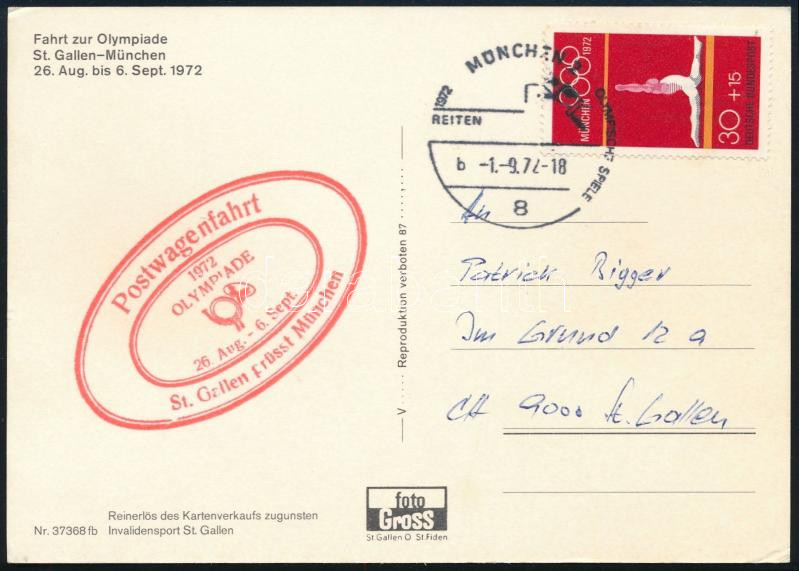 Fahrt zur Olympiade
St. Gallen–München
26. Aug. bis 6. Sept. 1972
MÜNCHEN
OLYMPISCHE SPIELE
1972
REITEN
b -1.-9.72-18
8
MÜNCHEN 1972
30+15
DEUTSCHE BUNDESPOST
Postwagenfahrt
1972
OLYMPIADE
26. Aug. - 6. Sept.
St. Gallen grüsst München
V ..... Reproduktion verboten 87 .....
An
Patrick Bigger
Im Grund 12 a
CH 9000 St. Gallen
foto
Gross
St.Gallen O St.Fiden
Reinerlös des Kartenverkaufs zugunsten
Nr. 37368 fb Invalidensport St. Gallen